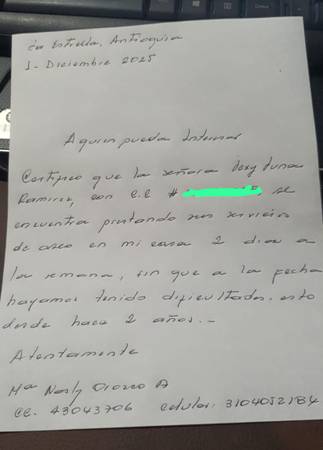 La Estrella, Antioquia
1- Diciembre 2025
A quien pueda Interesar
Certifico que la señora Doxy Luna
Ramirez, con C.C # se
encuentra prestando sus servicios
de aseo en mi casa 2 dias a
la semana, sin que a la fecha
hayamos tenido dificultades. esto
desde hace 2 años.-
Atentamente
Mª Nasly Orozco A
CC. 43043706 celular: 3104052184